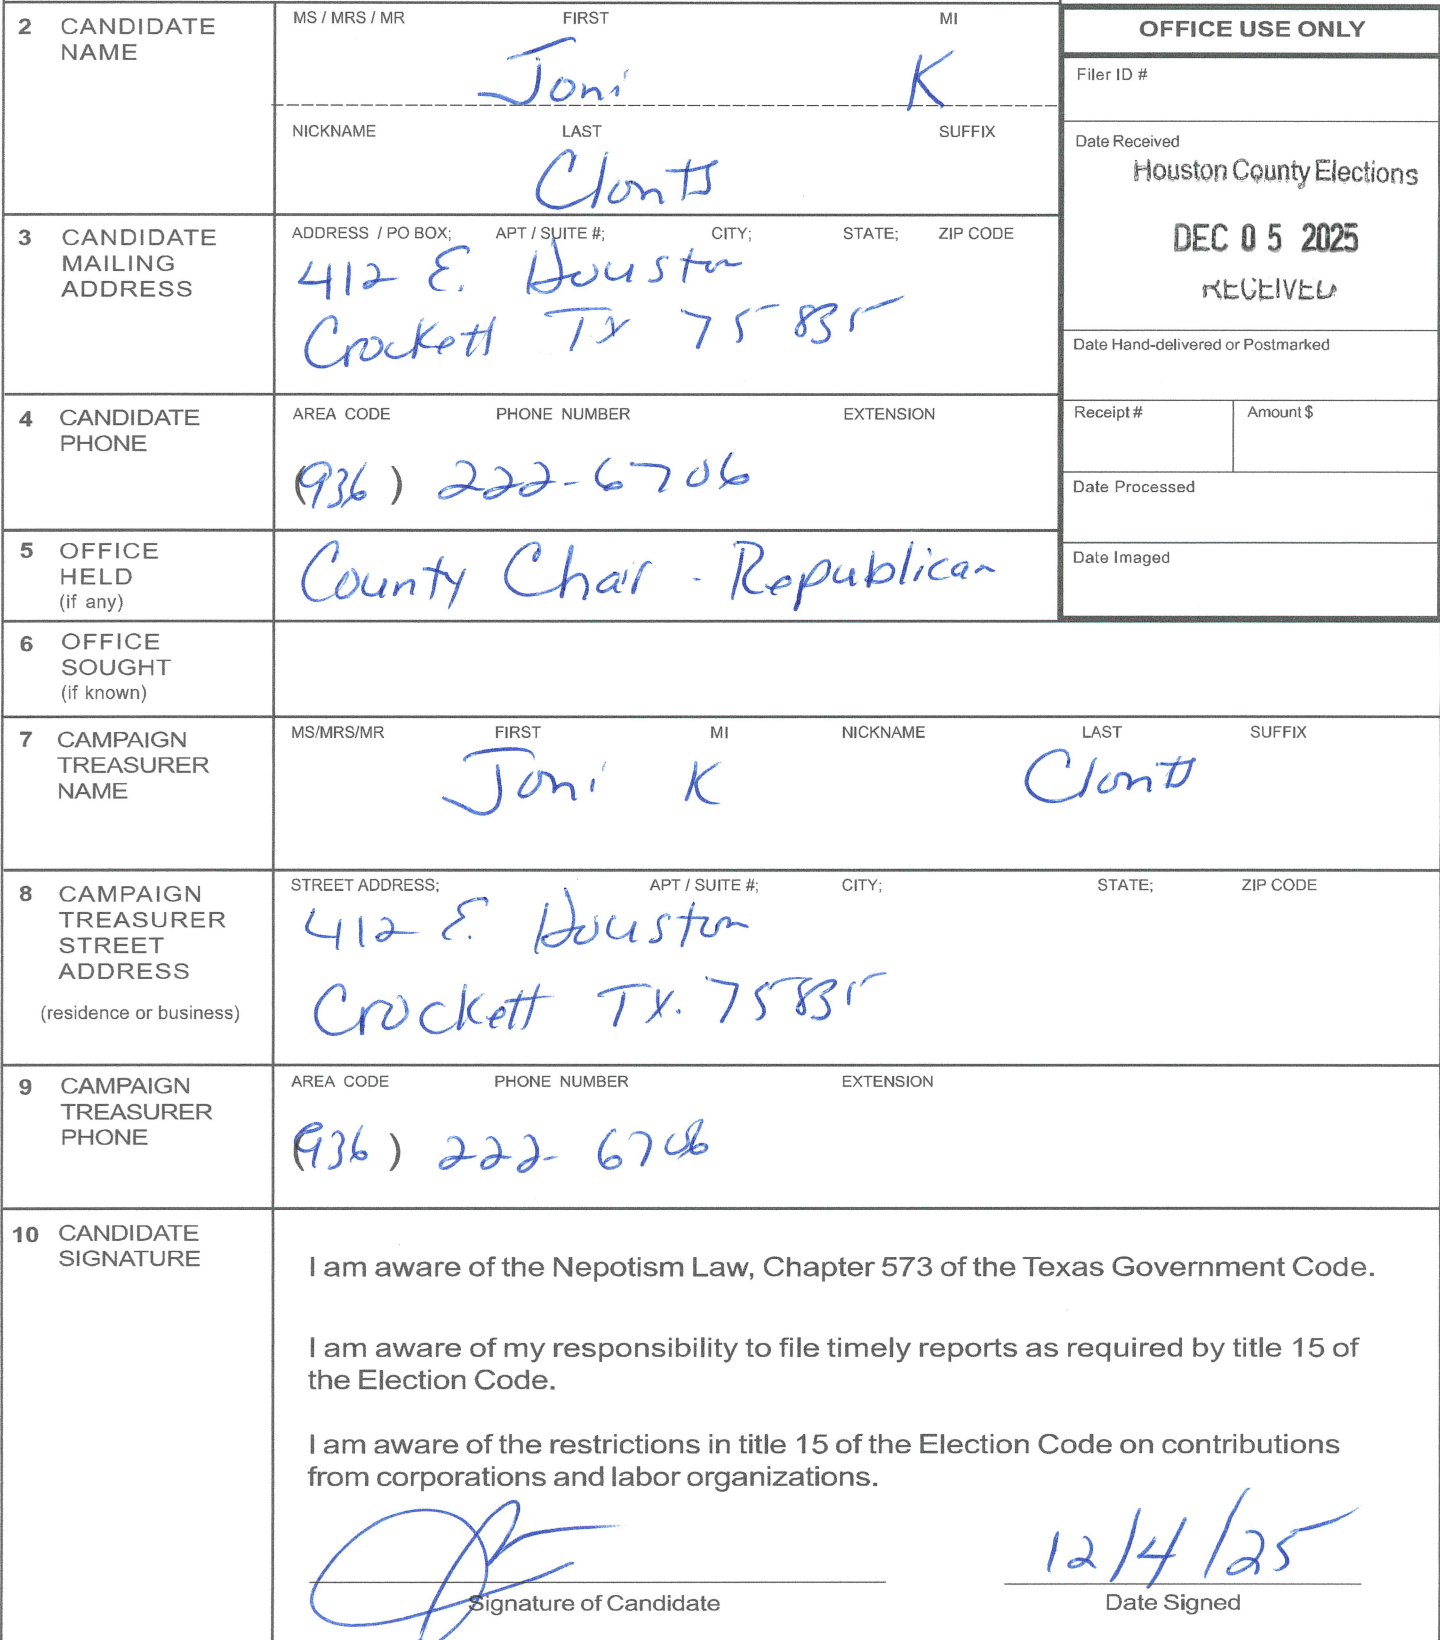 2 CANDIDATE NAME
MS / MRS / MR FIRST MI
Joni K
NICKNAME LAST SUFFIX
Clonts
OFFICE USE ONLY
Filer ID #
Date Received
Houston County Elections
DEC 05 2025
RECEIVED
Date Hand-delivered or Postmarked
Receipt # Amount $
Date Processed
Date Imaged
3 CANDIDATE MAILING ADDRESS
ADDRESS / PO BOX; APT / SUITE #; CITY; STATE; ZIP CODE
412 E. Houston
Crockett TX 75835
4 CANDIDATE PHONE
AREA CODE PHONE NUMBER EXTENSION
(936) 222-6706
5 OFFICE HELD (if any)
County Chair - Republican
6 OFFICE SOUGHT (if known)
7 CAMPAIGN TREASURER NAME
MS/MRS/MR FIRST MI NICKNAME LAST SUFFIX
Joni K Clonts
8 CAMPAIGN TREASURER STREET ADDRESS
(residence or business)
STREET ADDRESS; APT / SUITE #; CITY; STATE; ZIP CODE
412 E. Houston
Crockett TX. 75835
9 CAMPAIGN TREASURER PHONE
AREA CODE PHONE NUMBER EXTENSION
(936) 222-6706
10 CANDIDATE SIGNATURE
I am aware of the Nepotism Law, Chapter 573 of the Texas Government Code.
I am aware of my responsibility to file timely reports as required by title 15 of
the Election Code.
I am aware of the restrictions in title 15 of the Election Code on contributions
from corporations and labor organizations.
12/4/25
Signature of Candidate Date Signed